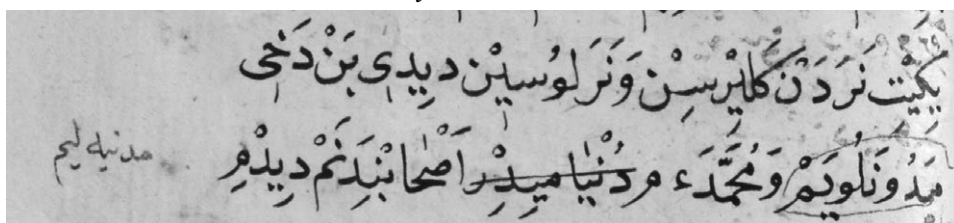 يِكِيْتِ نَرَدَنْ كَلَيِرْسِنْ وَنَرَلوُسيِنْ ديِدىِ بَنْ دَخِى
مَدُونَلُويَمْ وَمُحَمَّدَءِ م دُنْيَا ميِدِرْ اَصْحَابْنِدَنَمْ ديِدْمِ
مدينه ليم